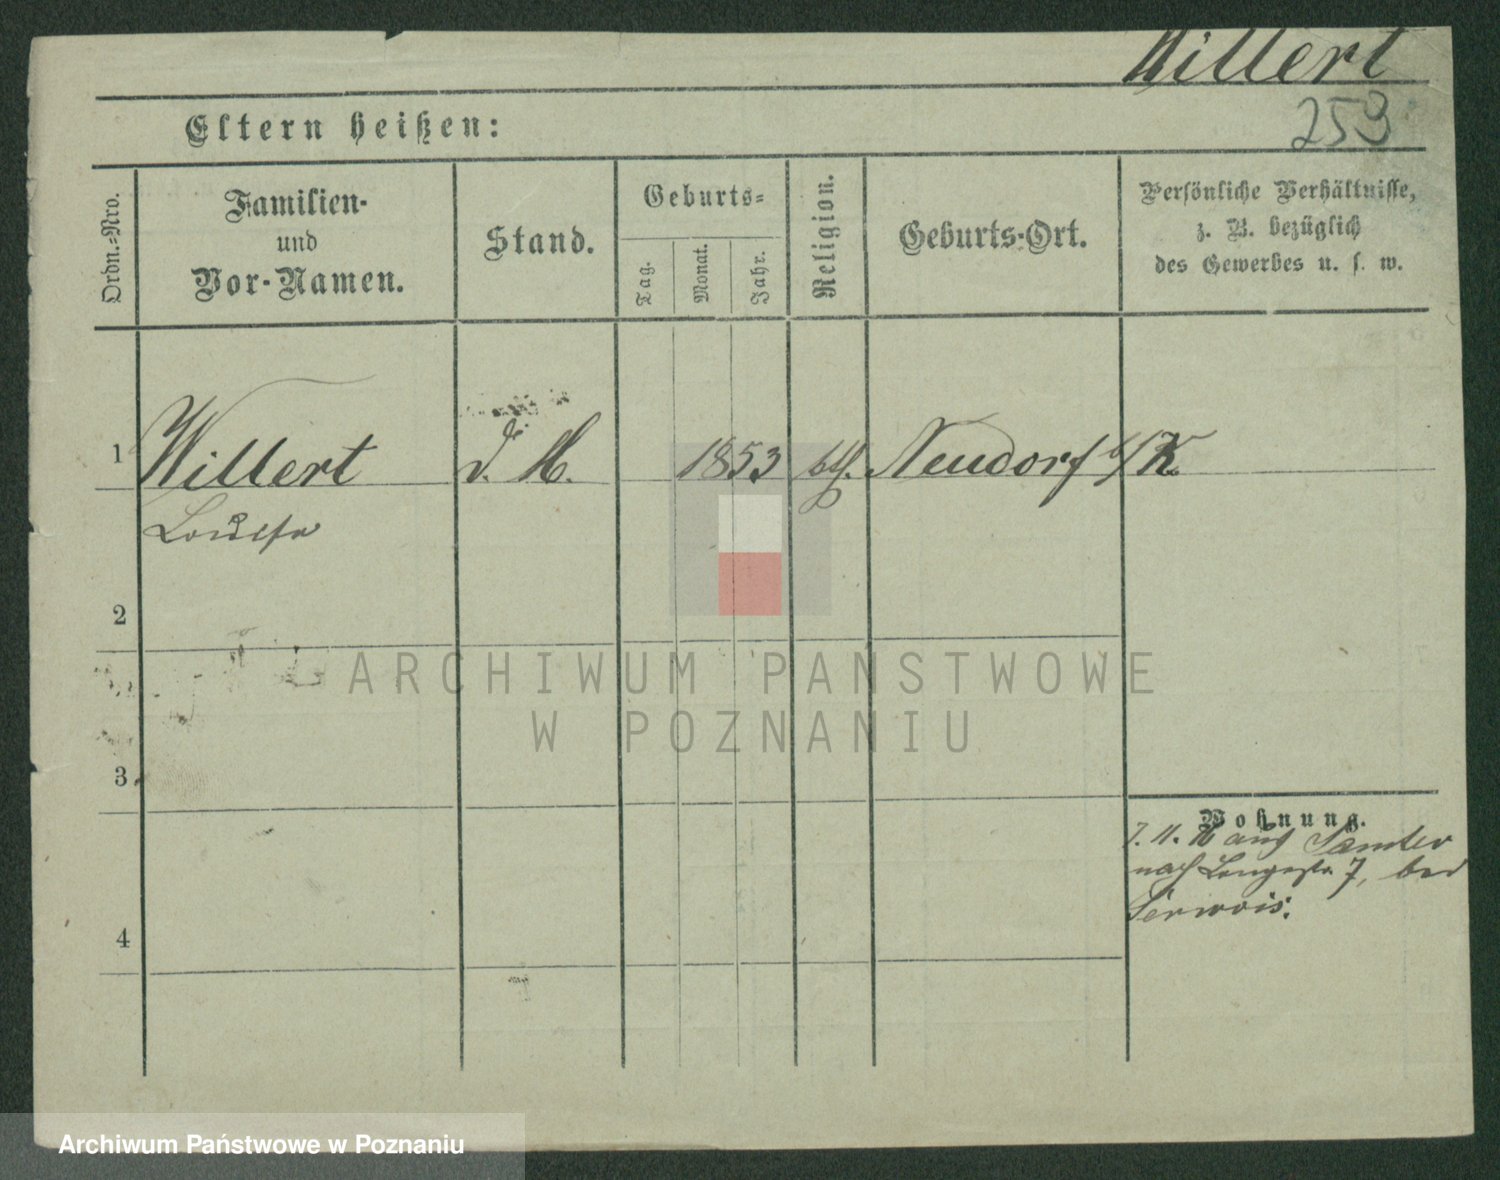 Willert
253
Eltern heißen:
Ordn.=Nro.
Familien-
und
Vor-Namen.
Stand.
Geburts=
Tag.
Monat.
Jahr.
Religion.
Geburts-Ort.
Persönliche Verhältnisse,
z. B. bezüglich
des Gewerbes u. s. w.
1 Willert d. M. 1853 Neudorf b/K.
Louise
2
3
4
Wohnung.
7. 11. aus Samter
nach Langestr. 7, bei
ARCHIWUM PAŃSTWOWE
W POZNANIU
Archiwum Państwowe w Poznaniu